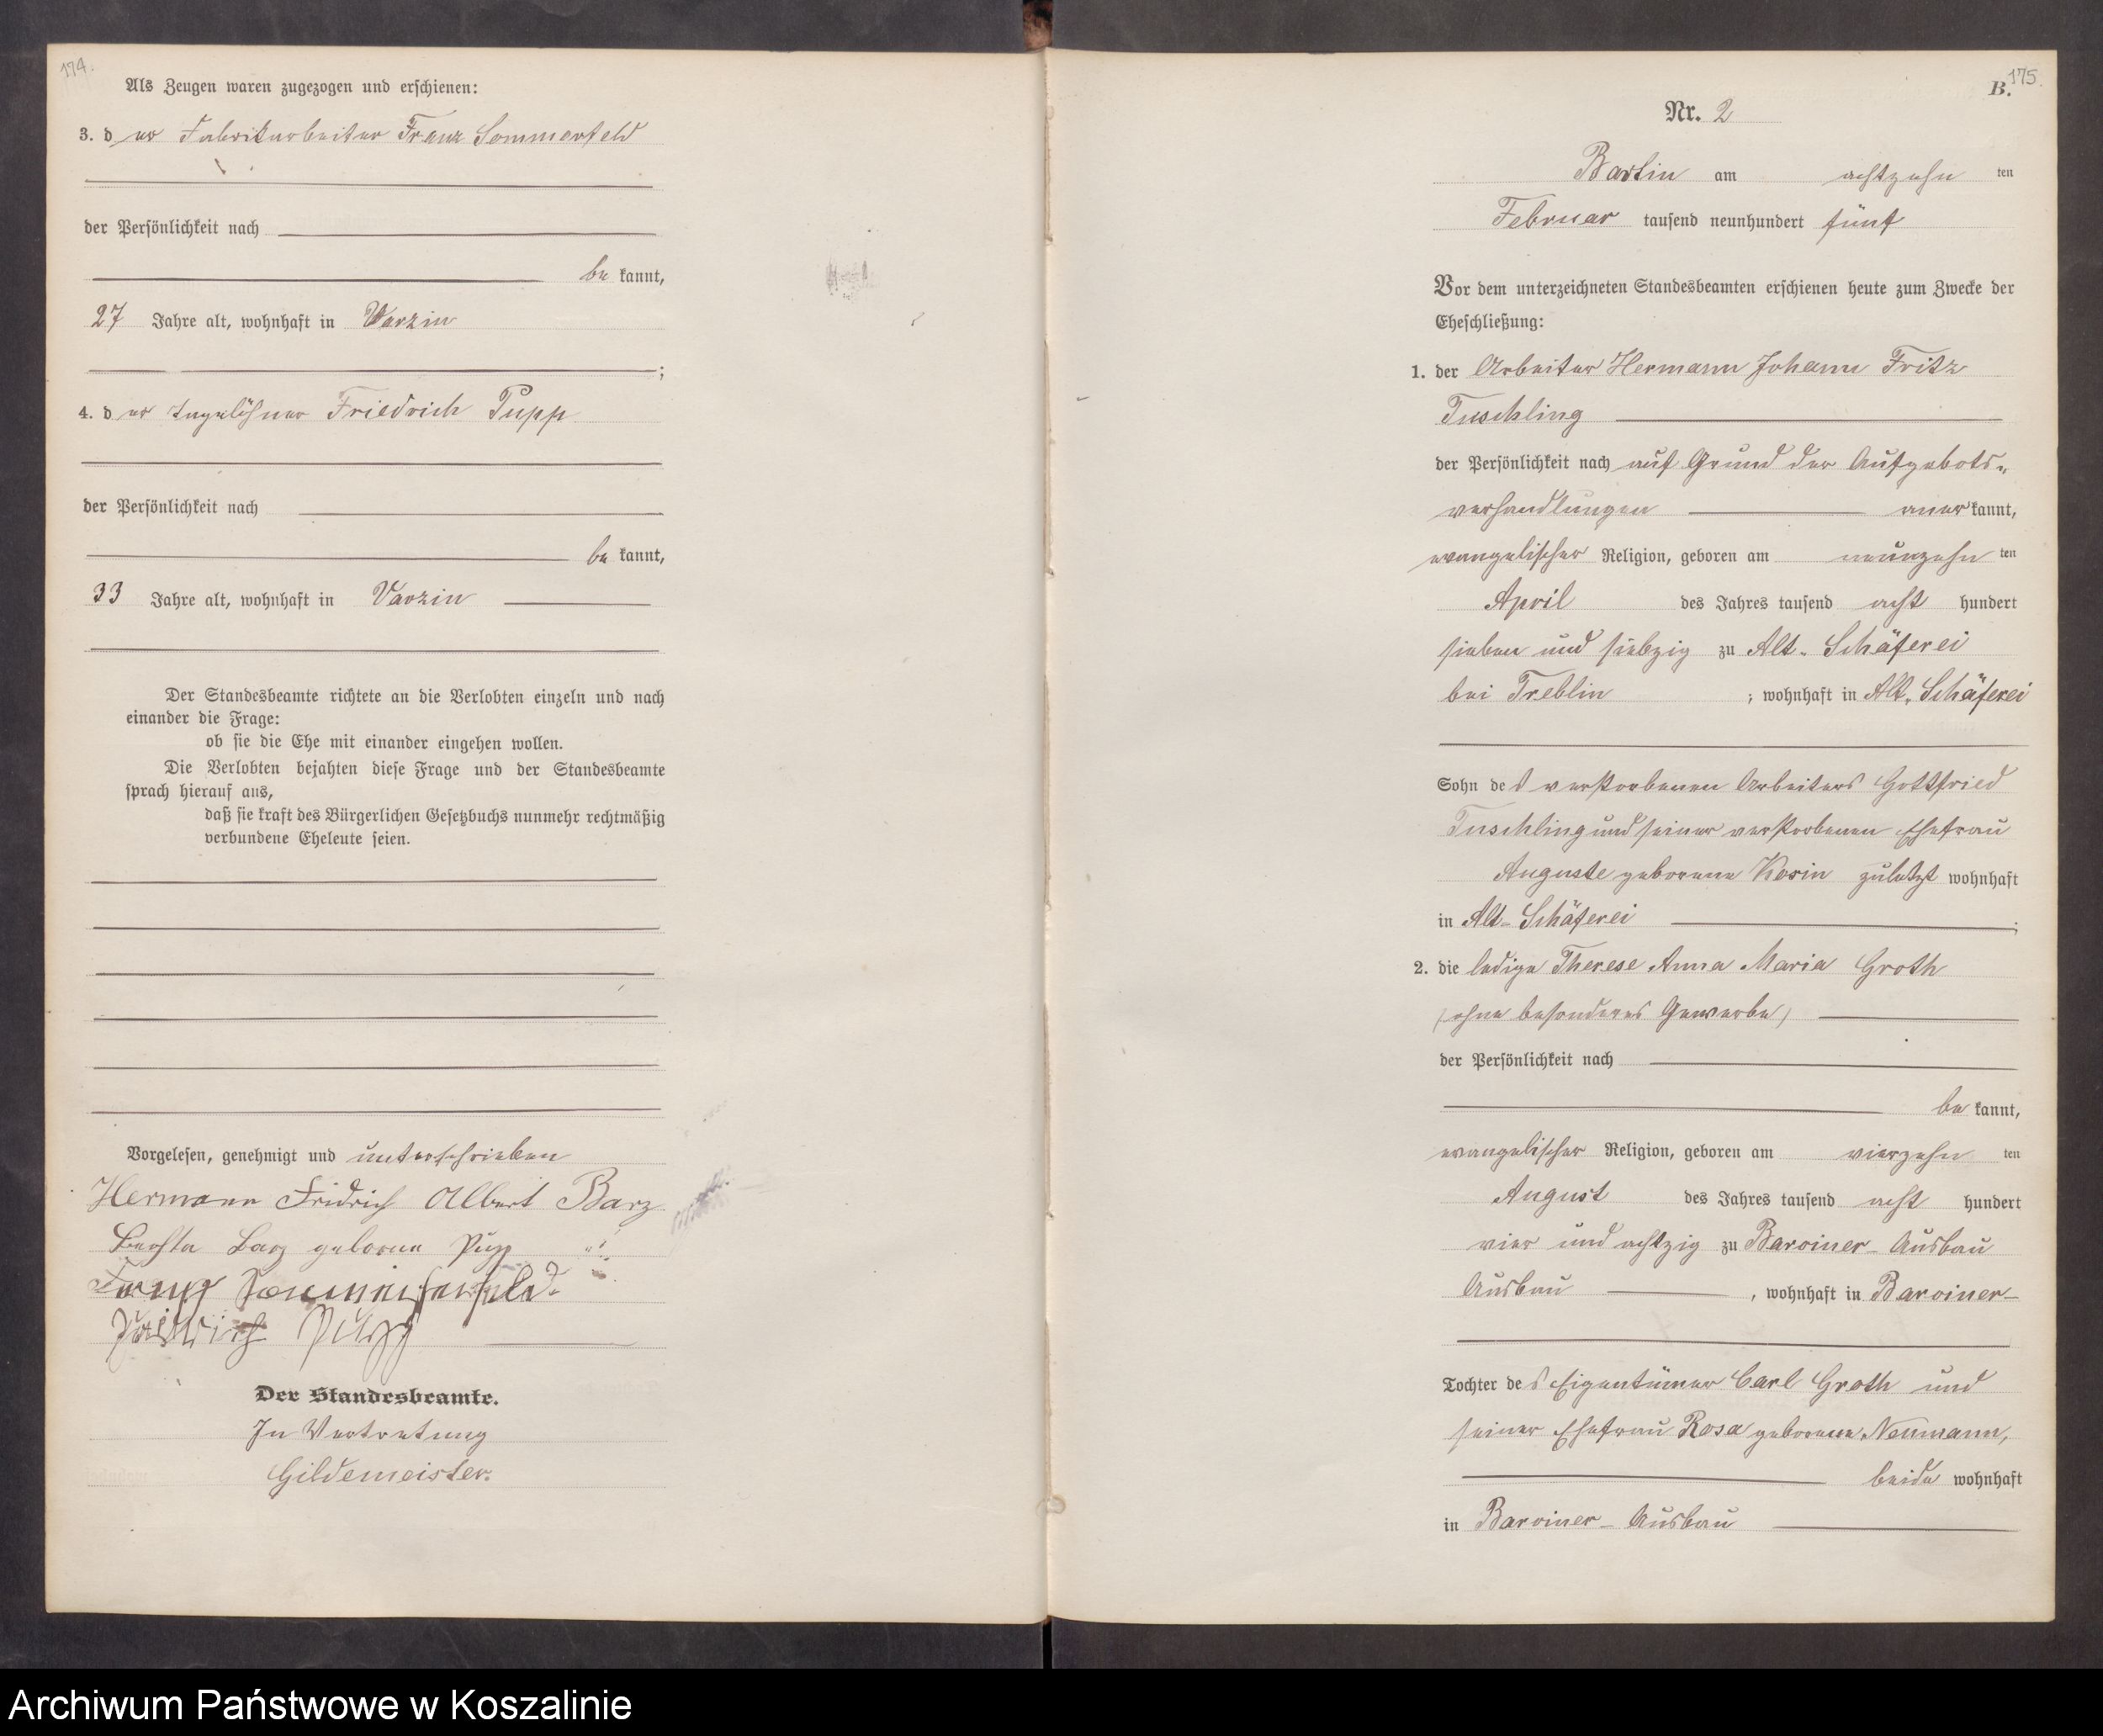 174.
Als Zeugen waren zugezogen und erschienen:
3. der Fabrikarbeiter Franz Sommerfeld
der Persönlichkeit nach
be kannt,
27 Jahre alt, wohnhaft in Varzin
;
4. der Tagelöhner Friedrich Pupp
der Persönlichkeit nach
be kannt,
33 Jahre alt, wohnhaft in Varzin
Der Standesbeamte richtete an die Verlobten einzeln und nach
einander die Frage:
ob sie die Ehe mit einander eingehen wollen.
Die Verlobten bejahten diese Frage und der Standesbeamte
sprach hierauf aus,
daß sie kraft des Bürgerlichen Gesetzbuchs nunmehr rechtmäßig
verbundene Eheleute seien.
Vorgelesen, genehmigt und unterschrieben
Hermann Fridrich Albert Barz
Bertha Barz geborene Pupp
Franz Sommerfeld.
Friedrich Pupp
Der Standesbeamte.
In Vertretung
Gildemeister.
175.
B.
Nr. 2
Bartin am achtzehn ten
Februar tausend neunhundert fünf
Vor dem unterzeichneten Standesbeamten erschienen heute zum Zwecke der
Eheschließung:
1. der Arbeiter Hermann Johann Fritz
Tuschling
der Persönlichkeit nach auf Grund der Aufgebots-
verhandlungen aner kannt,
evangelischer Religion, geboren am neunzehn ten
April des Jahres tausend acht hundert
sieben und siebzig zu Alt-Schäferei
bei Treblin ; wohnhaft in Alt-Schäferei
Sohn des verstorbenen Arbeiters Gottfried
Tuschling und seiner verstorbenen Ehefrau
Auguste geborene Kosin zuletzt wohnhaft
in Alt-Schäferei ;
2. die ledige Therese Anna Maria Groth
(ohne besonderes Gewerbe)
der Persönlichkeit nach
be kannt,
evangelischer Religion, geboren am vierzehn ten
August des Jahres tausend acht hundert
vier und achtzig zu Barviner-Ausbau
Ausbau , wohnhaft in Barviner-
Tochter des Eigentümer Carl Groth und
seiner Ehefrau Rosa geborene Neumann,
beide wohnhaft
in Barviner-Ausbau
Archiwum Państwowe w Koszalinie